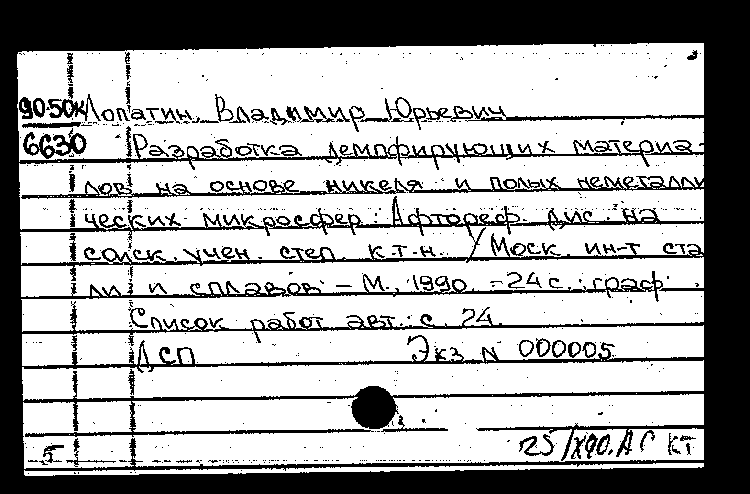 9050к Лопатин Владимир Юрьевич
6630 Разработка демпфирующих материа-
лов на основе никеля и полых неметалли
ческих микросфер: Афтореф. дис. на
соиск. учен. степ. к.т.н. / Моск. ин-т ста
ли и сплавов - М., 1990. - 24 с.: граф.
Список работ авт.: с. 24.
ДСП Экз N 000005
5 25/XII90. АС КТ